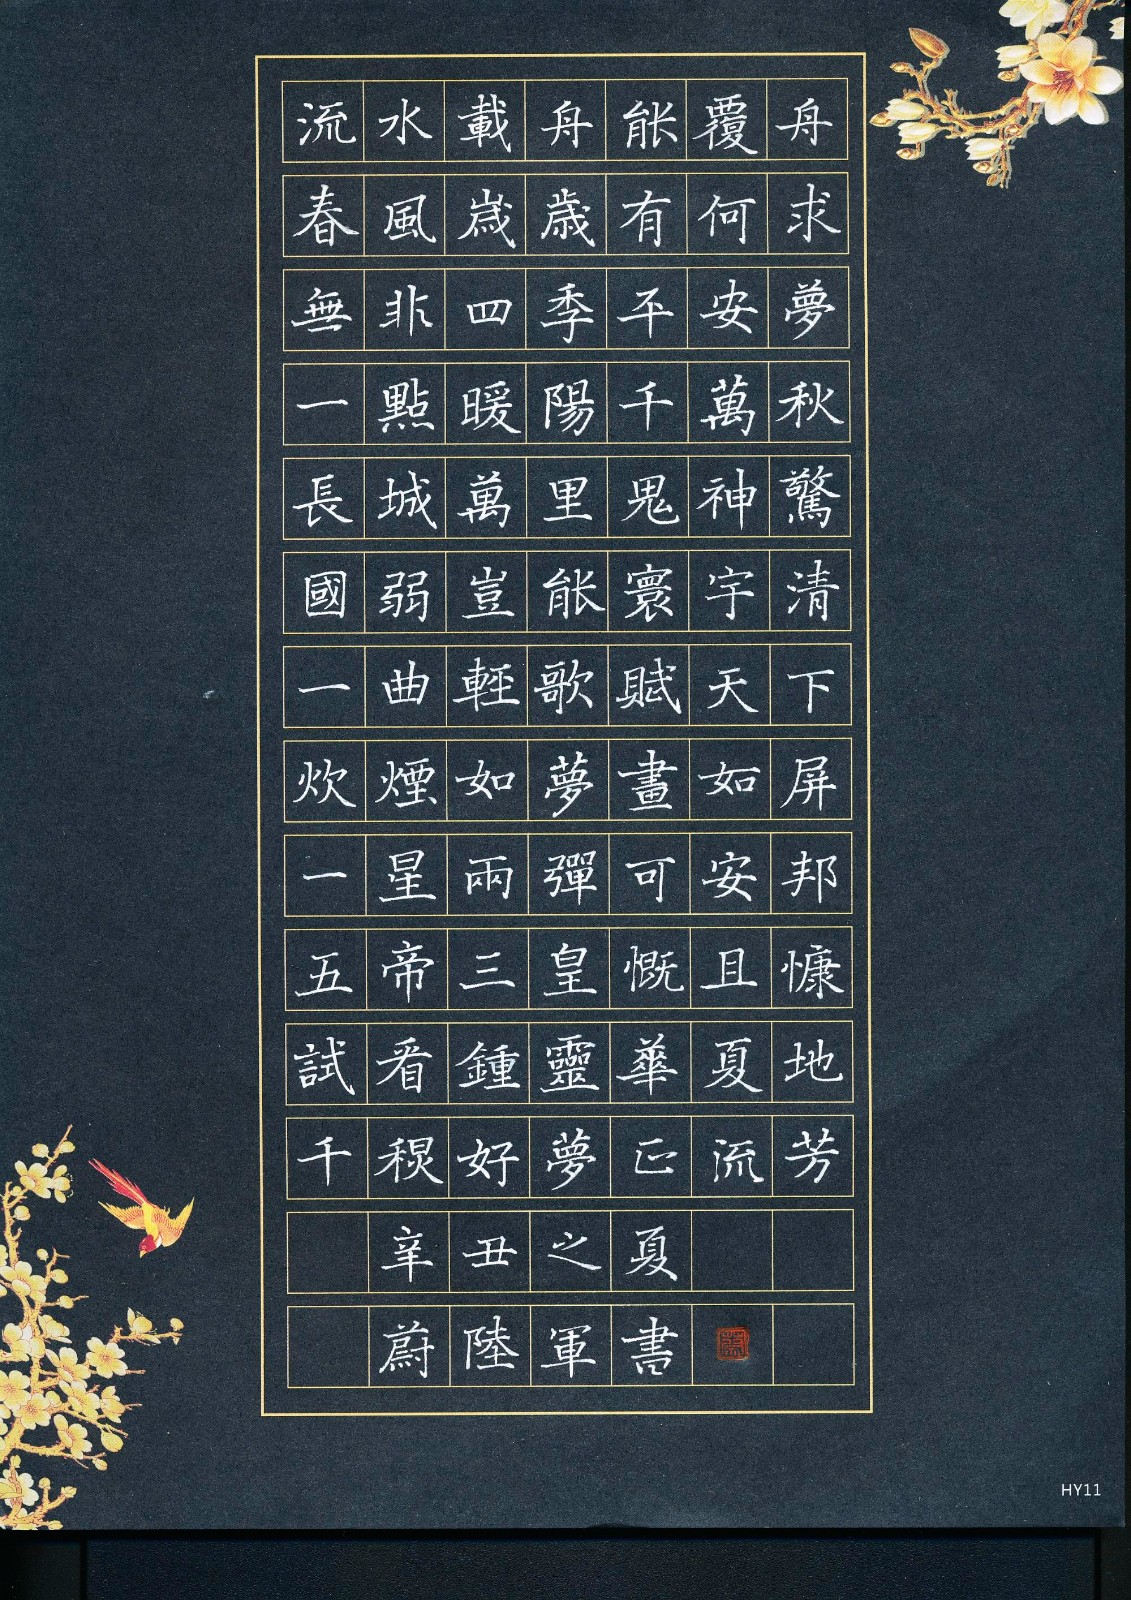 流水載舟能覆舟
春風嵗歳有何求
無非四季平安夢
一點暖陽千萬秋
長城萬里鬼神驚
國弱豈能寰宇清
一曲輕歌賦天下
炊煙如夢畫如屏
一星兩彈可安邦
五帝三皇慨且慷
試看鍾靈華夏地
千好夢正流芳
辛丑之夏
蔚陸軍書
HY11